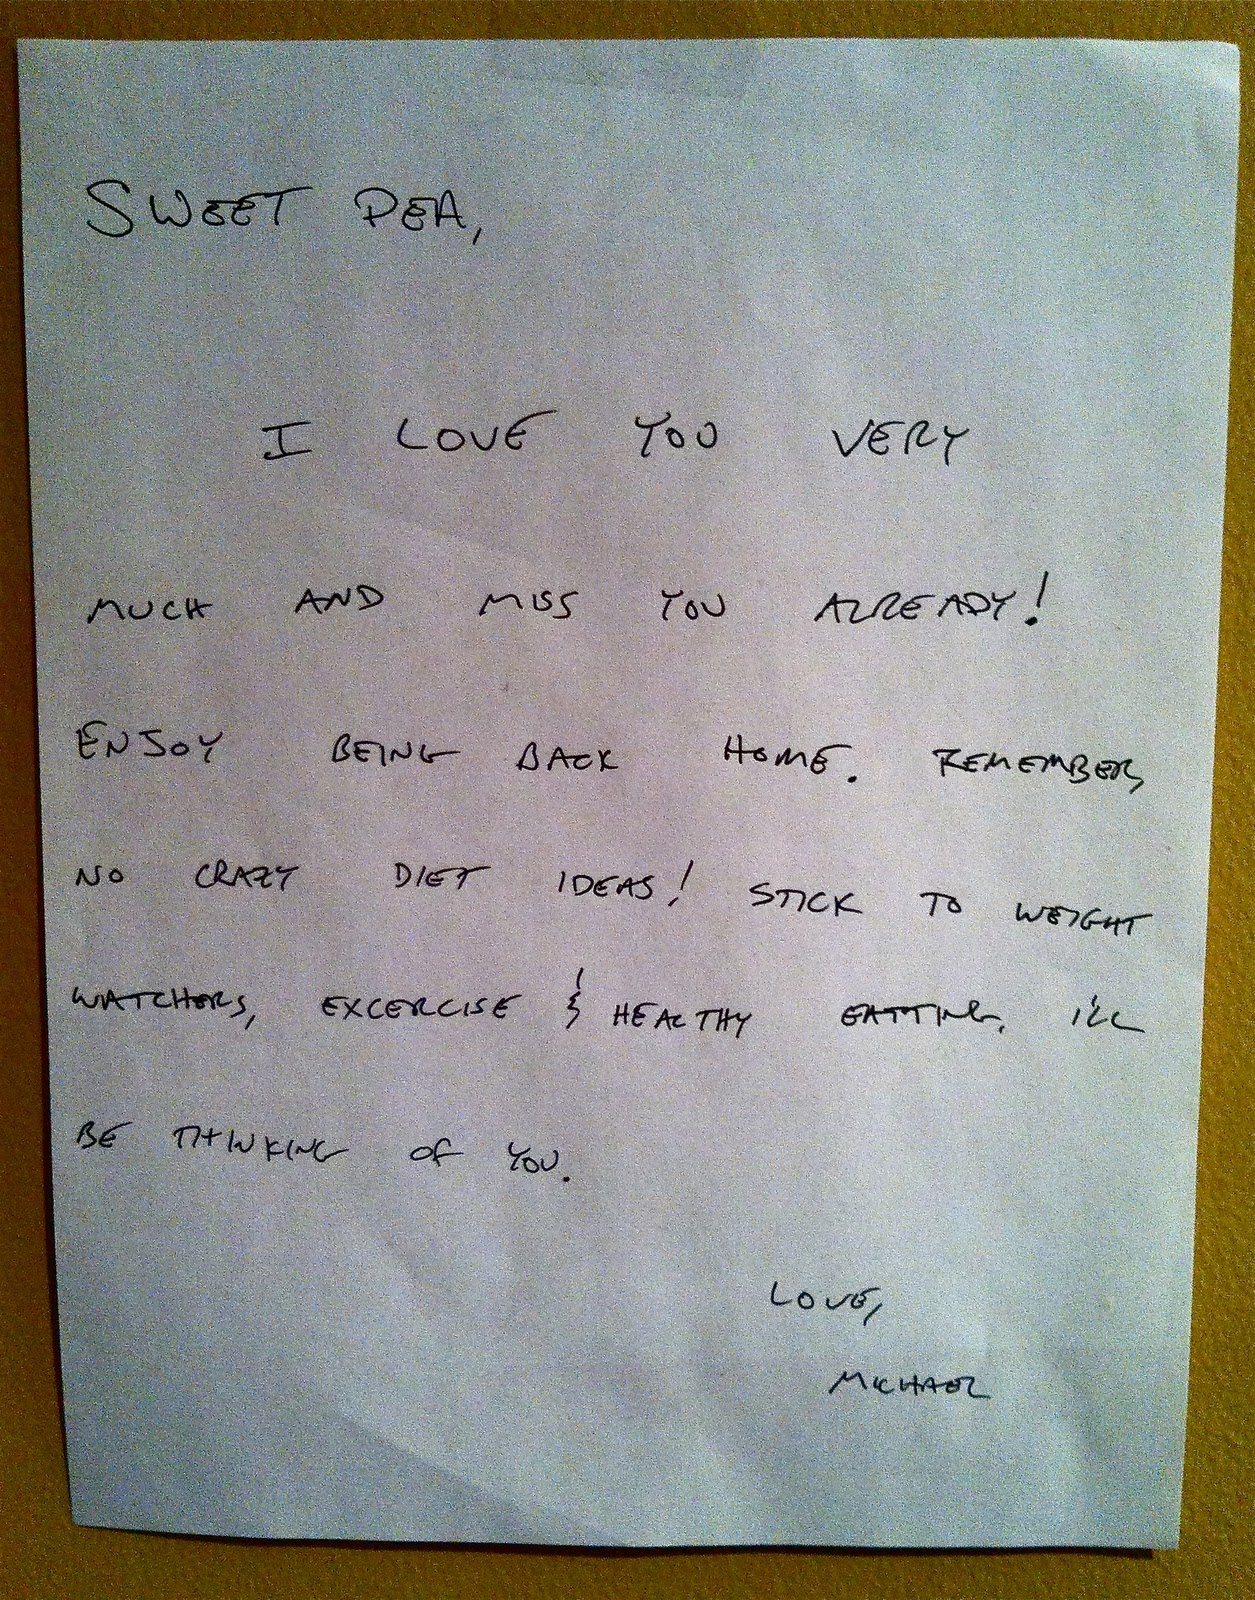 SWEET PEA,
I LOVE YOU VERY
MUCH AND MISS YOU ALREADY!
ENJOY BEING BACK HOME. REMEMBER,
NO CRAZY DIET IDEAS! STICK TO WEIGHT
WATCHERS, EXCERCISE & HEALTHY EATTING. I'LL
BE THINKING OF YOU.
LOVE,
MICHAEL